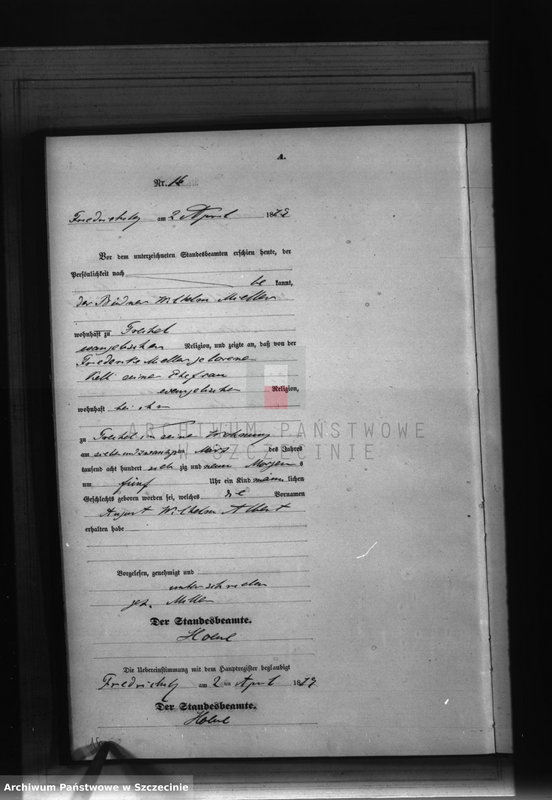 A.
Nr. 16
am 2 April 1879
Vor dem unterzeichneten Standesbeamten erschien heute, der
Persönlichkeit nach
be kannt,
der Büdner Wilhelm
wohnhaft zu
evangelischer Religion, und zeigte an, daß von der
geborene
seiner Ehefrau
evangelischer Religion,
wohnhaft bei ihm
zu in seine Wohnung
am März des Jahres
tausend acht hundert sieb zig und neun Morgen s
um fünf Uhr ein Kind männ lichen
Geschlechts geboren worden sei, welches die Vornamen
August Wilhelm Albert
erhalten habe
Vorgelesen, genehmigt und
unterschrieben
gez.
Der Standesbeamte.
Die Uebereinstimmung mit dem Hauptregister beglaubigt
am 2 ten April 1879
Der Standesbeamte.
ARCHIWUM PAŃSTWOWE
W SZCZECINIE
Archiwum Państwowe w Szczecinie